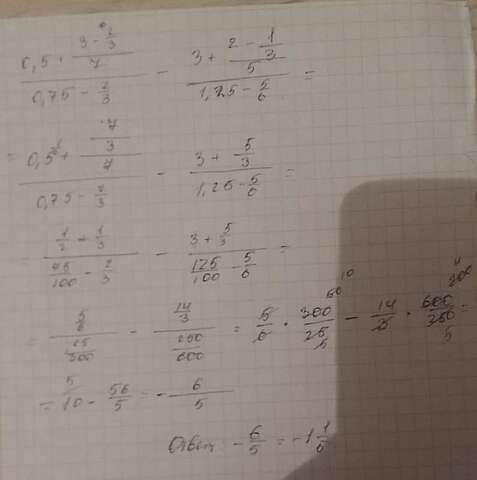 (0,5 + (3 - 2/3)/7)/(0,75 - 2/3) - (3 + (2 - 1/3)/5)/(1,25 - 5/6) =
= (0,5 + (7/3)/7)/(0,75 - 2/3) - (3 + 5/3)/(1,25 - 5/6) =
= (1/2 + 1/3)/(75/100 - 2/3) - (3 + 5/3)/(125/100 - 5/6) =
= (5/6)/(25/300) - (14/3)/(250/600) = 5/6 · 300/25 - 14/3 · 600/250 =
= 10 - 56/5 = - 6/5
Ответ - 6/5 = -1 1/5